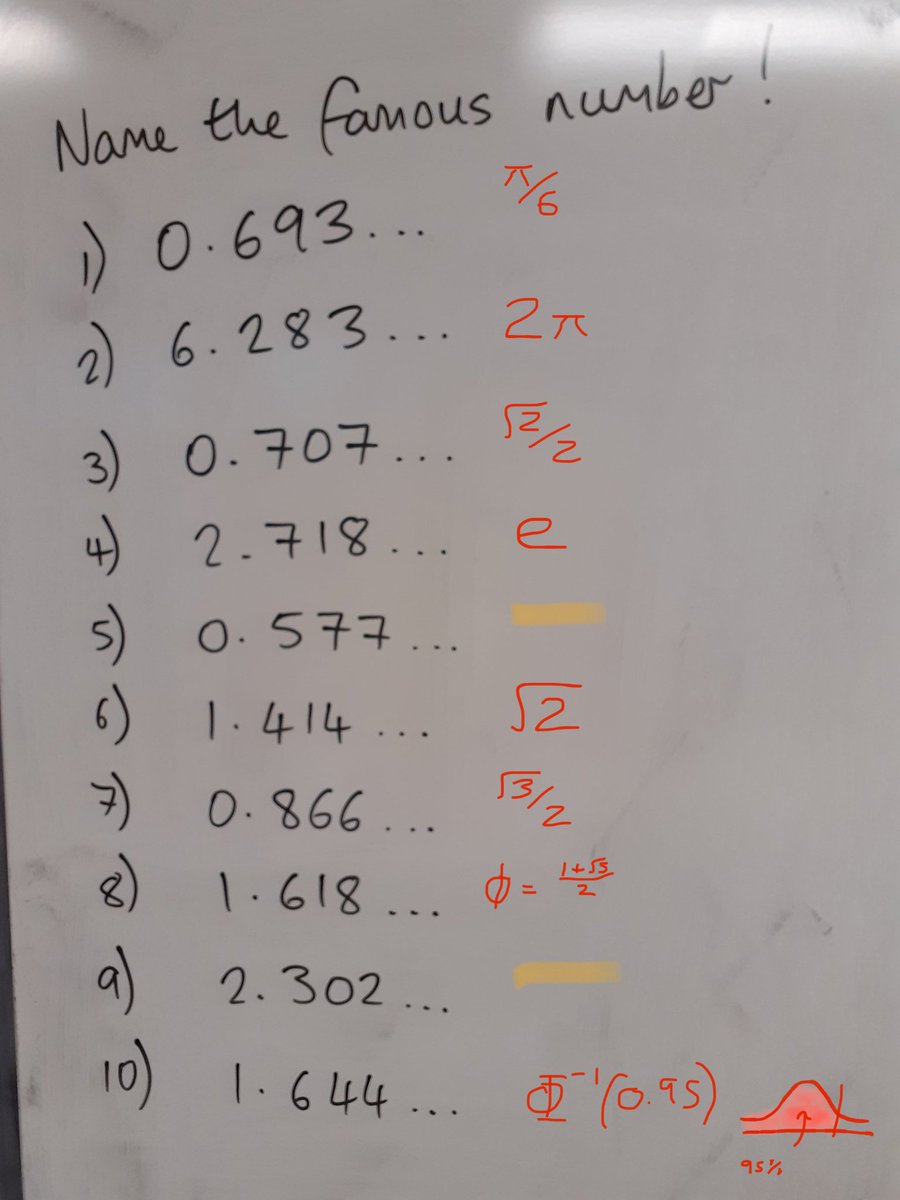 Name the famous number!
1) 0.693... π/6
2) 6.283... 2π
3) 0.707... √2/2
4) 2.718... e
5) 0.577...
6) 1.414... √2
7) 0.866... √3/2
8) 1.618... ϕ = (1+√5)/2
9) 2.302...
10) 1.644... Φ⁻¹(0.95)
95%